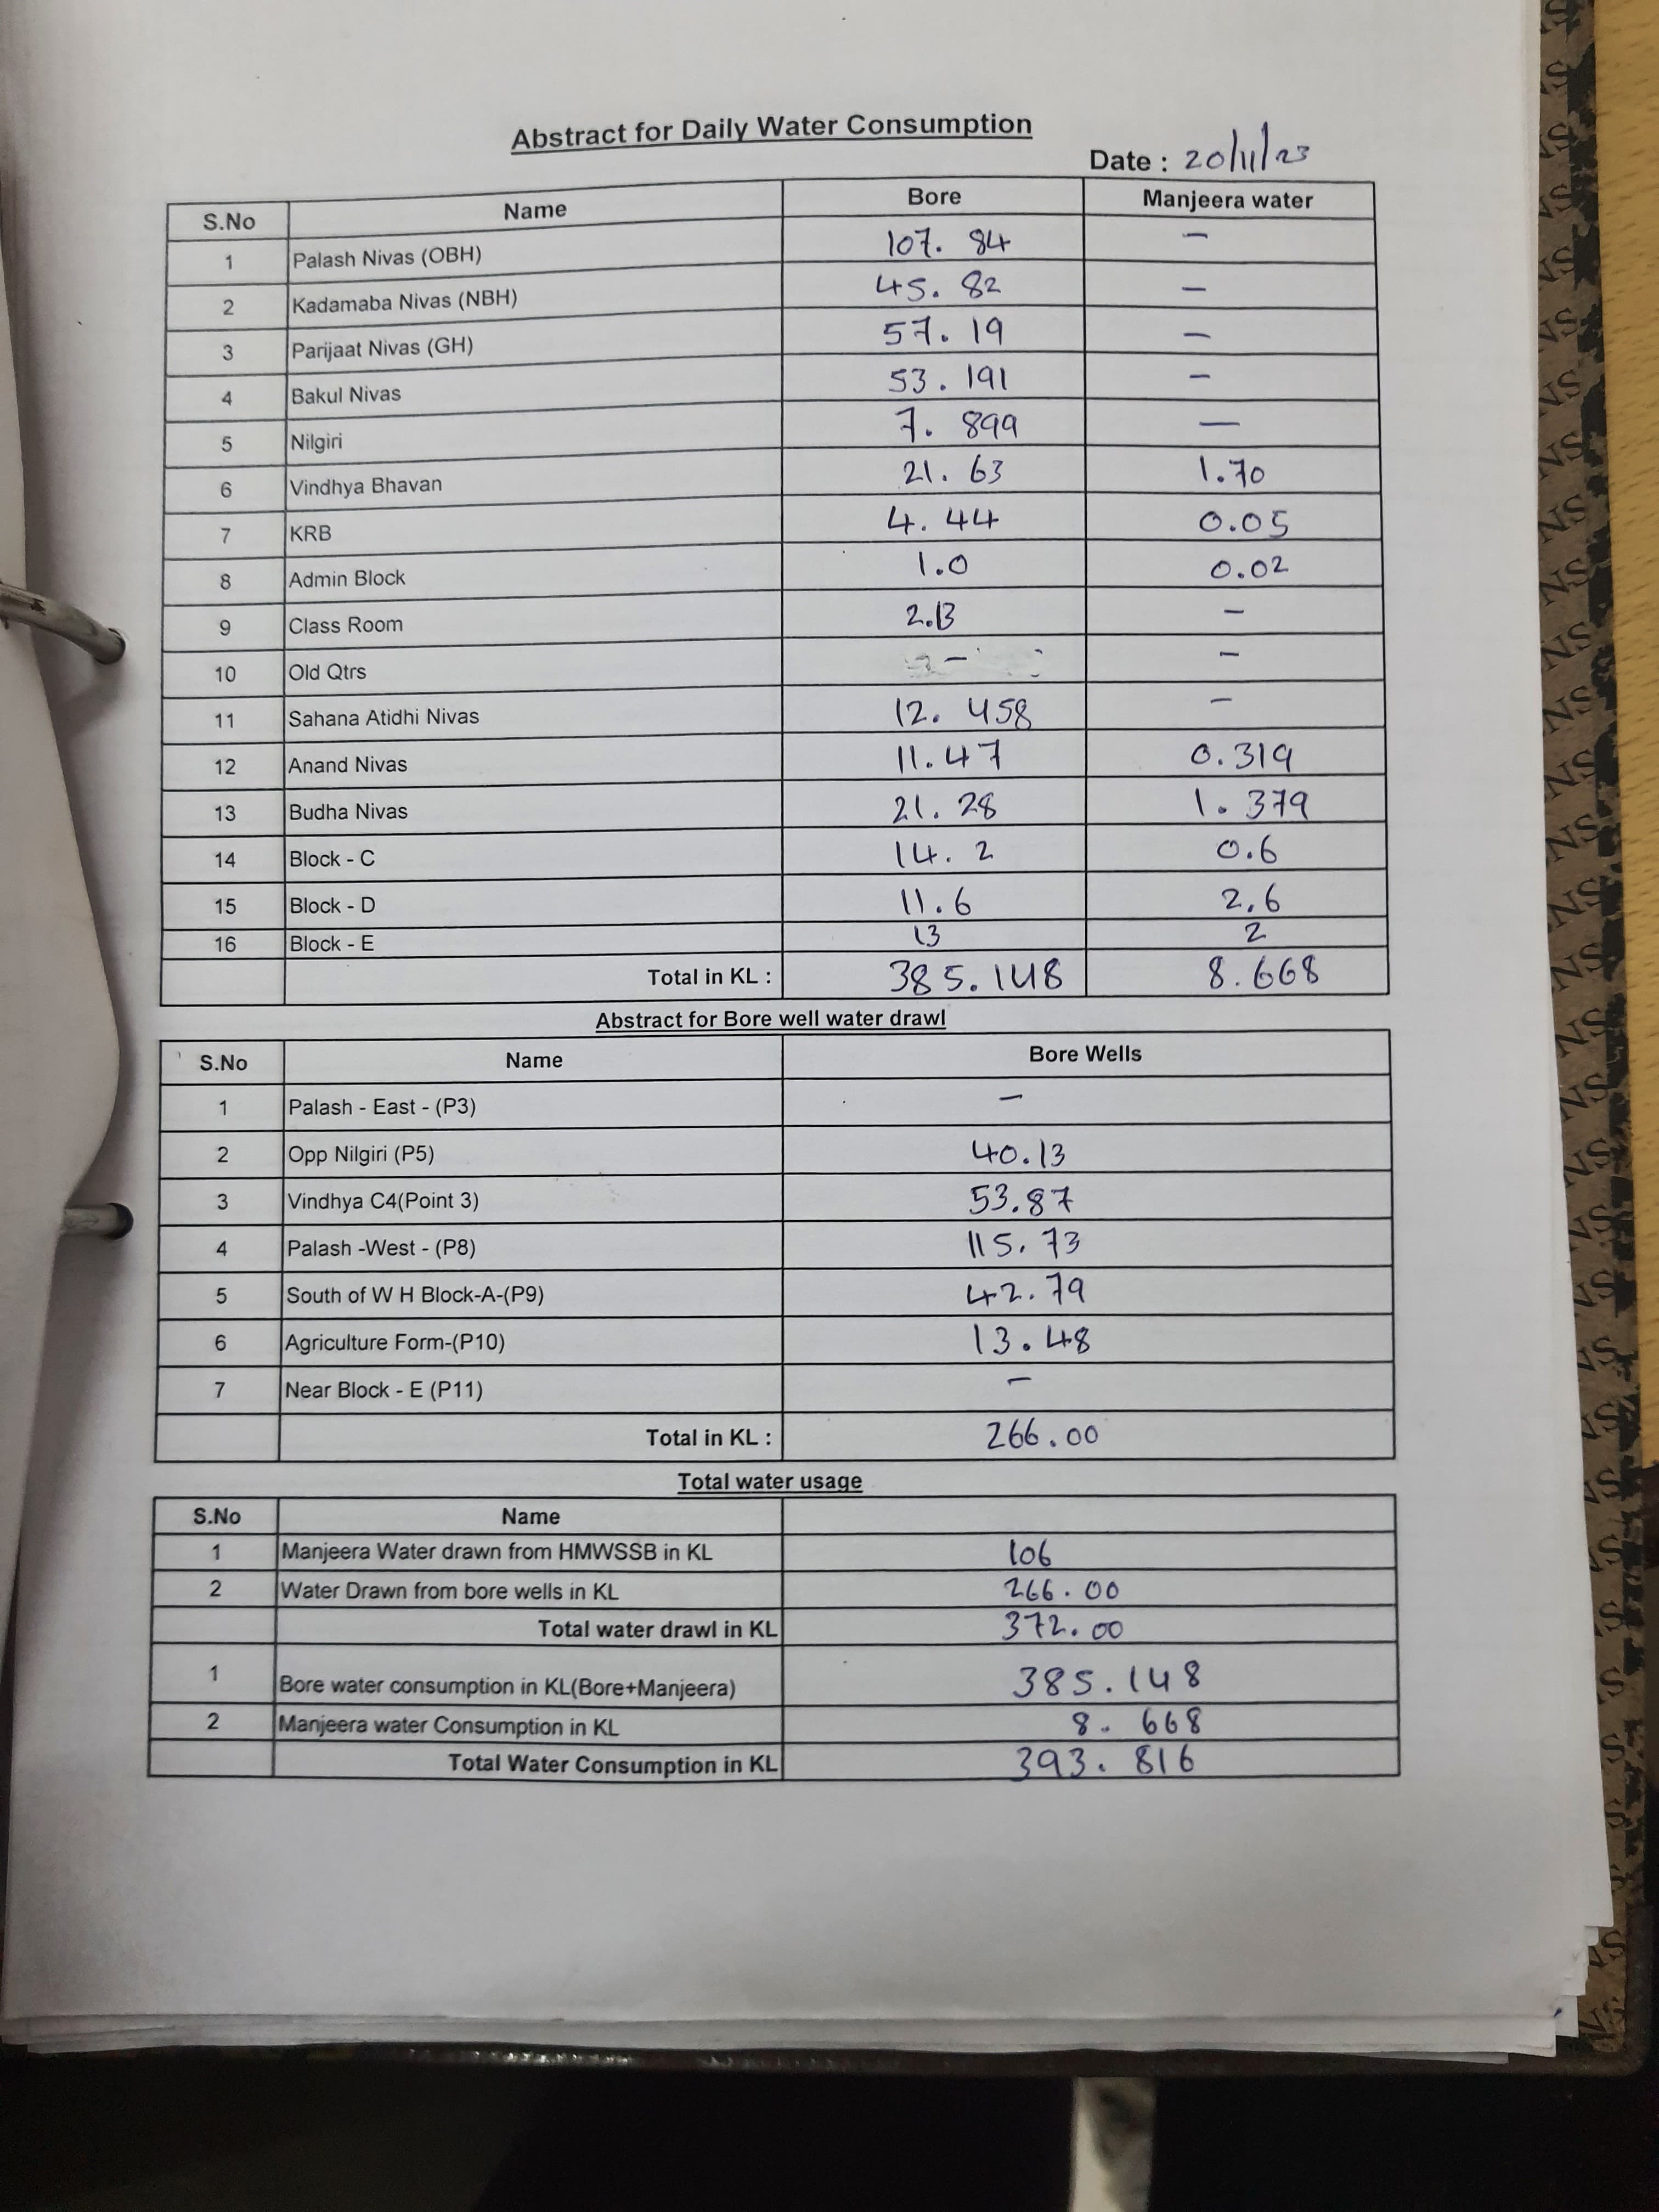 Abstract for Daily Water Consumption
Date : 20/11/23
S.No Name Bore Manjeera water
1 Palash Nivas (OBH) 107. 84 –
2 Kadamaba Nivas (NBH) 45. 82 –
3 Parijaat Nivas (GH) 57. 19 –
4 Bakul Nivas 53. 191 –
5 Nilgiri 7. 899 –
6 Vindhya Bhavan 21. 63 1.70
7 KRB 4. 44 0.05
8 Admin Block 1.0 0.02
9 Class Room 2.13 –
10 Old Qtrs – –
11 Sahana Atidhi Nivas 12. 458 –
12 Anand Nivas 11.47 0.319
13 Budha Nivas 21. 28 1. 379
14 Block - C 14. 2 0.6
15 Block - D 11.6 2.6
16 Block - E 13 2
Total in KL : 385.148 8.668
Abstract for Bore well water drawl
S.No Name Bore Wells
1 Palash - East - (P3) –
2 Opp Nilgiri (P5) 40.13
3 Vindhya C4(Point 3) 53.87
4 Palash -West - (P8) 115.73
5 South of W H Block-A-(P9) 42.79
6 Agriculture Form-(P10) 13.48
7 Near Block - E (P11) –
Total in KL : 266.00
Total water usage
S.No Name
1 Manjeera Water drawn from HMWSSB in KL 106
2 Water Drawn from bore wells in KL 266.00
Total water drawl in KL 372.00
1 Bore water consumption in KL(Bore+Manjeera) 385.148
2 Manjeera water Consumption in KL 8. 668
Total Water Consumption in KL 393. 816